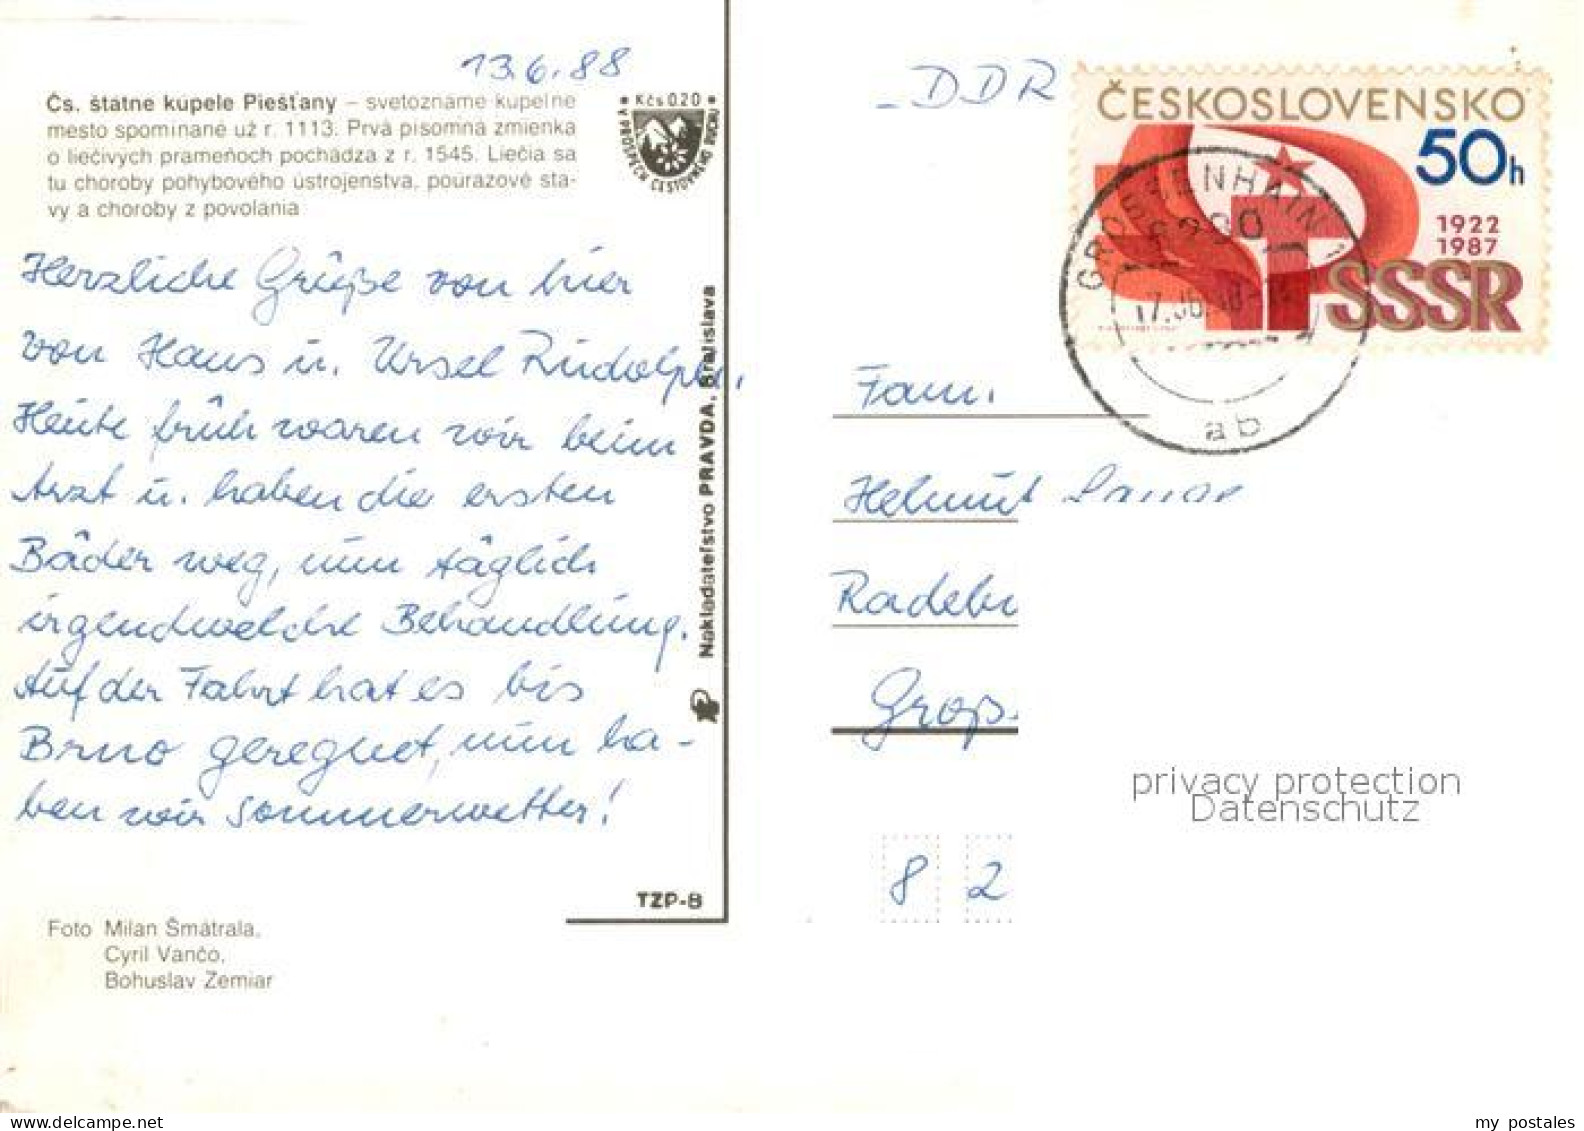 13.6.88
Čs. štátne kúpele Piešťany – svetoznáme kúpeľné
mesto spomínané už r. 1113. Prvá písomná zmienka
o liečivých prameňoch pochádza z r. 1545. Liečia sa
tu choroby pohybového ústrojenstva, pourazové sta-
vy a choroby z povolania
• Kčs 0.20 •
V PROSPECH CESTOVNÉHO RUCHU
Herzliche Grüße von hier
von Haus u. Ursel Rudolph.
Heute früh waren wir beim
Arzt u. haben die ersten
Bäder weg, nun täglich
irgendwelche Behandlung.
Auf der Fahrt hat es bis
Brno geregnet, nun ha-
ben wir Sommerwetter!
Nakladateľstvo PRAVDA, Bratislava
TZP-8
Foto Milan Šmátrala,
Cyril Vančo,
Bohuslav Zemiar
- DDR
ČESKOSLOVENSKO
50h
1922
1987
SSSR
GROSSENHAIN
ab
Fam.
Helmut
Radebu
Groß-
privacy protection
Datenschutz
8 2
my postales